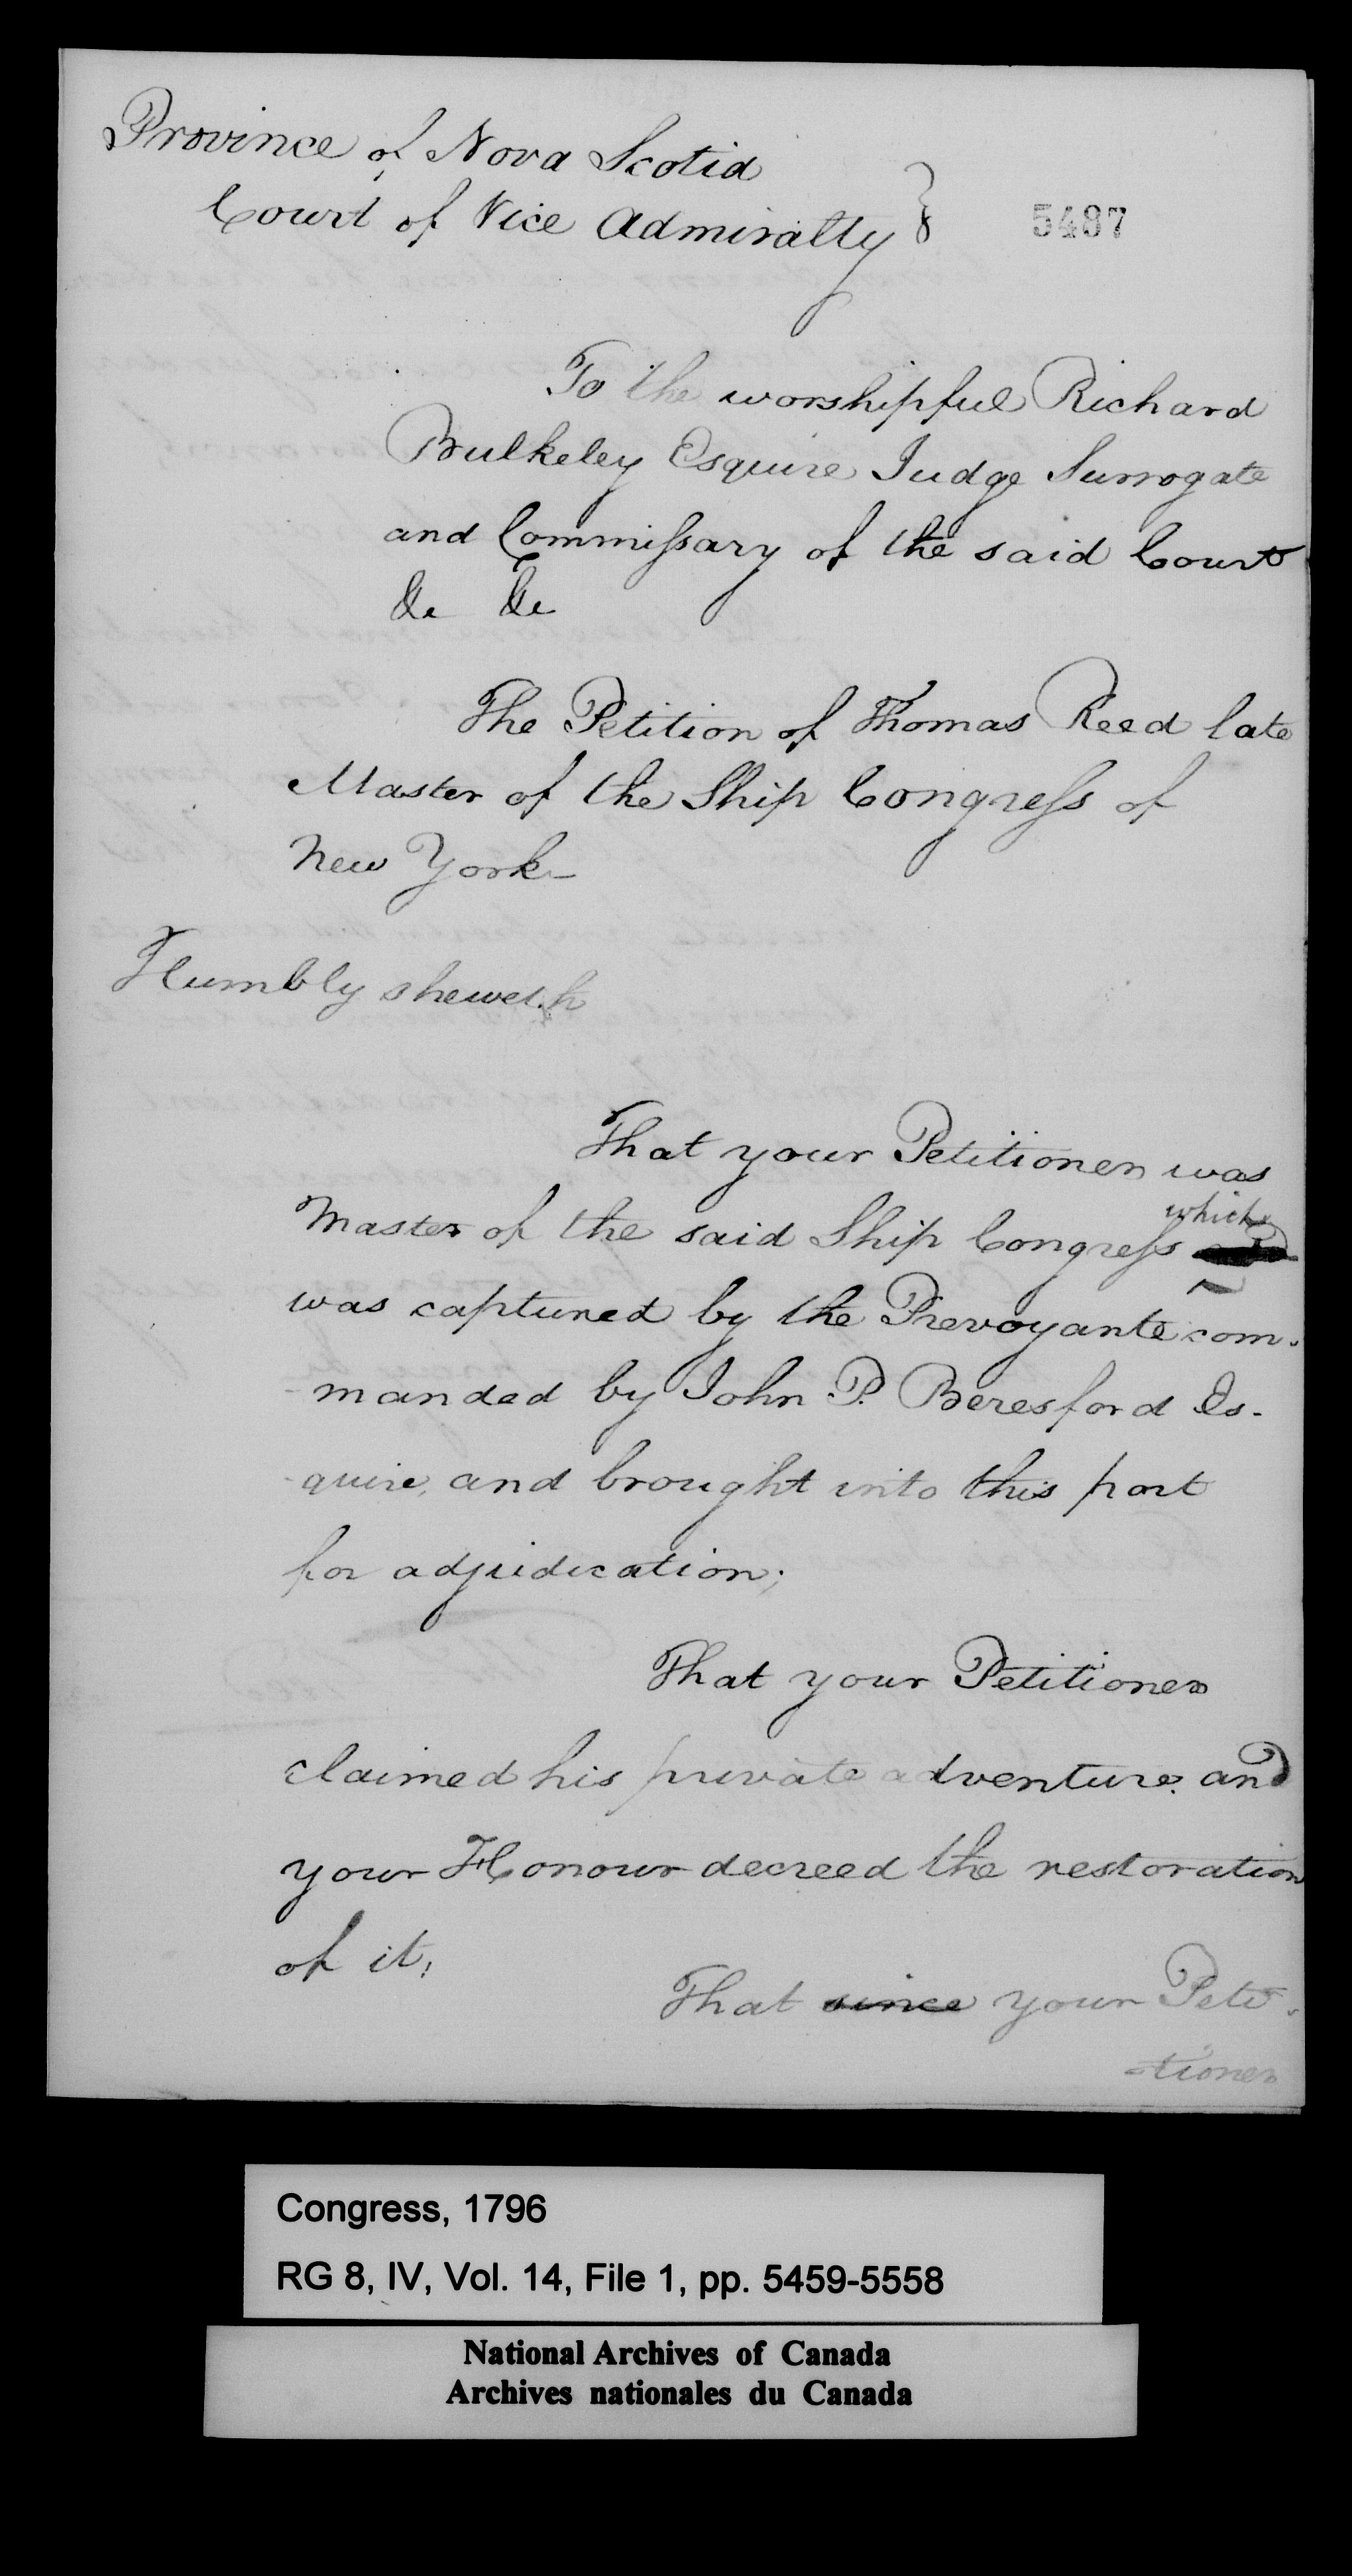 Province of Nova Scotia
Court of Vice Admiralty }
5487
To the worshipful Richard
Bulkeley Esquire Judge Surrogate
and Commissary of the said Court
&c &c
The Petition of Thomas Reed late
Master of the Ship Congress of
New York
Humbly sheweth
That your Petitioner was
which
Master of the said Ship Congress
was captured by the Prevoyante com-
-manded by John P. Beresford Es-
-quire, and brought into this port
for adjudication;
That your Petitioner
claimed his private adventure and
your Honour decreed the restoration
of it;
That since your Peti-
-tioner
Congress, 1796
RG 8, IV, Vol. 14, File 1, pp. 5459-5558
National Archives of Canada
Archives nationales du Canada